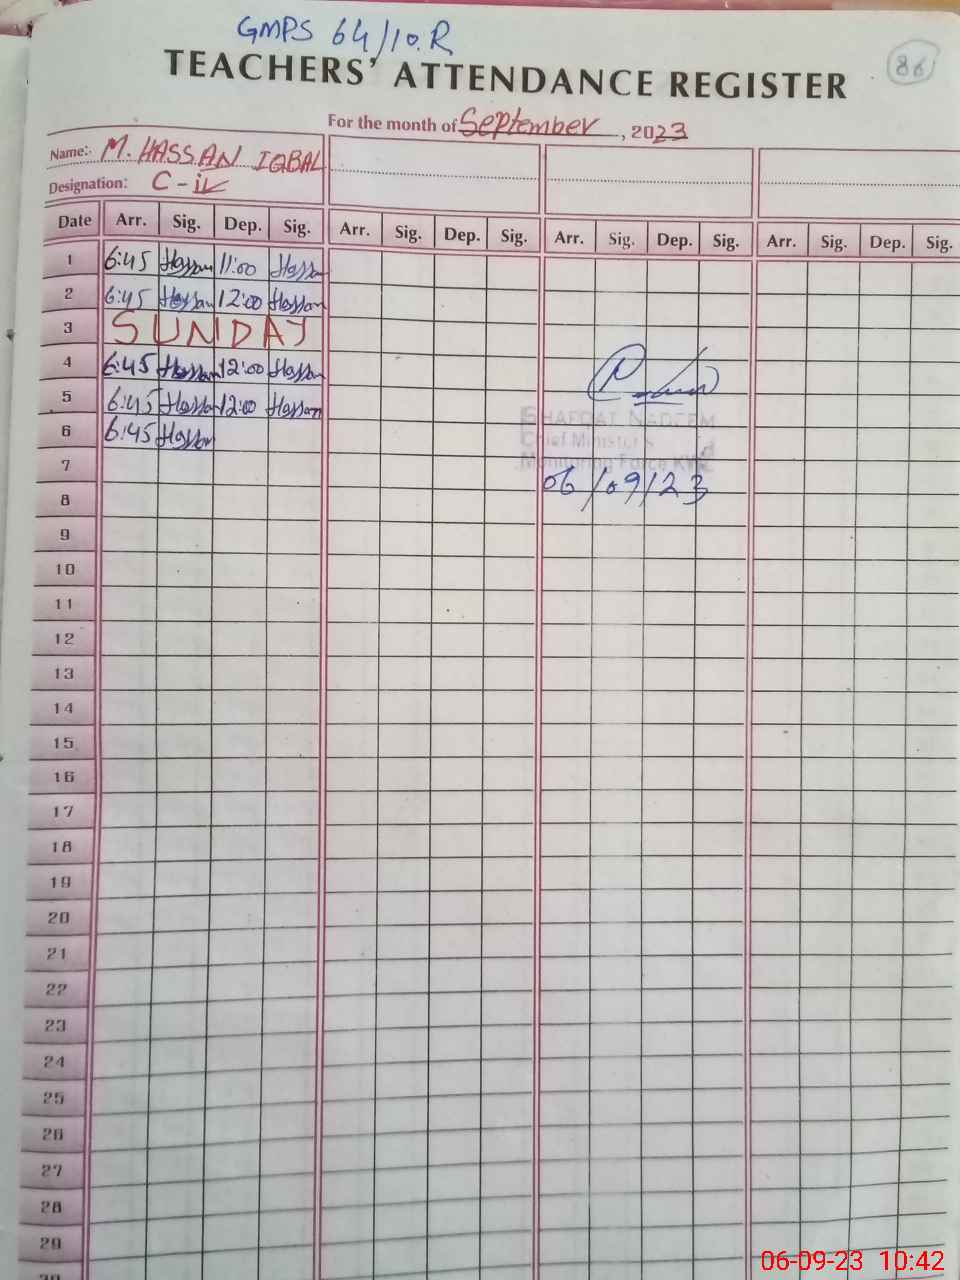 GMPS 64/10.R
86
TEACHERS' ATTENDANCE REGISTER
For the month of September, 2023
Name: M. HASSAN IQBAL
Designation: C-iv
Date Arr. Sig. Dep. Sig. Arr. Sig. Dep. Sig. Arr. Sig. Dep. Sig. Arr. Sig. Dep. Sig.
1 6:45 Hassan 11:00 Hassan
2 6:45 Hassan 12:00 Hassan
3 SUNDAY
4 6:45 Hassan 12:00 Hassan
5 6:45 Hassan 12:00 Hassan
SHAFQAT NADEEM
6 6:45 Hassan
Chief Minister's
Monitoring Force KWL
7
06/09/23
8
9
10
11
12
13
14
15
16
17
18
19
20
21
22
23
24
25
26
27
28
29
30
06-09-23 10:42